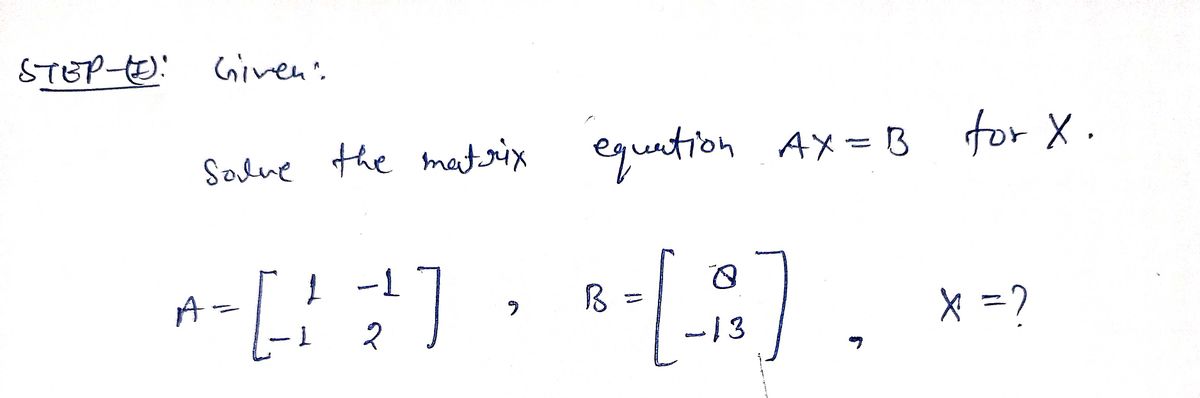 STEP-(I): Given:
Solve the matrix equation AX = B for X.
A = [1 -1; -1 2], B = [0; -13], X = ?